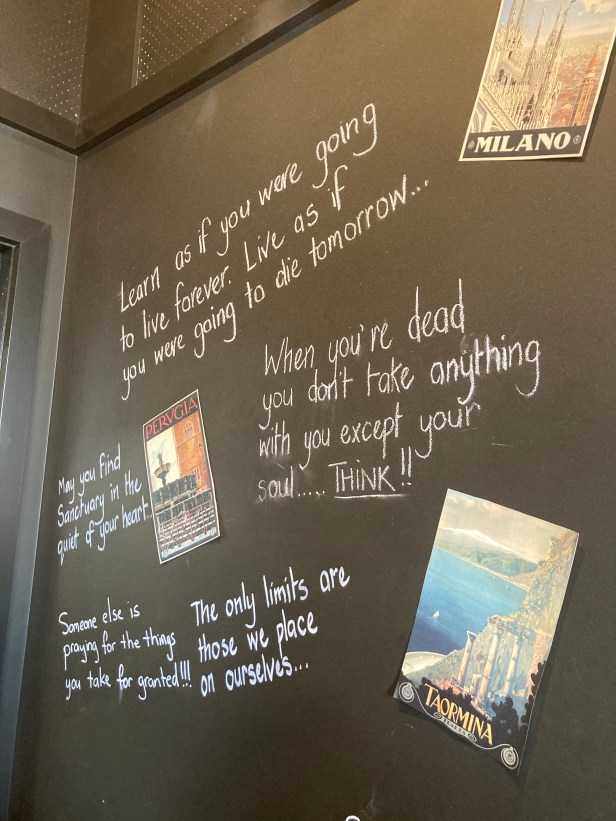 MILANO
Learn as if you were going
to live forever. Live as if
you were going to die tomorrow...
When you're dead
you don't take anything
with you except your
soul..... THINK!!
PERVGIA
May you find
Sanctuary in the
quiet of your heart...
Someone else is
praying for the things
you take for granted!!!
The only limits are
those we place
on ourselves...
TAORMINA